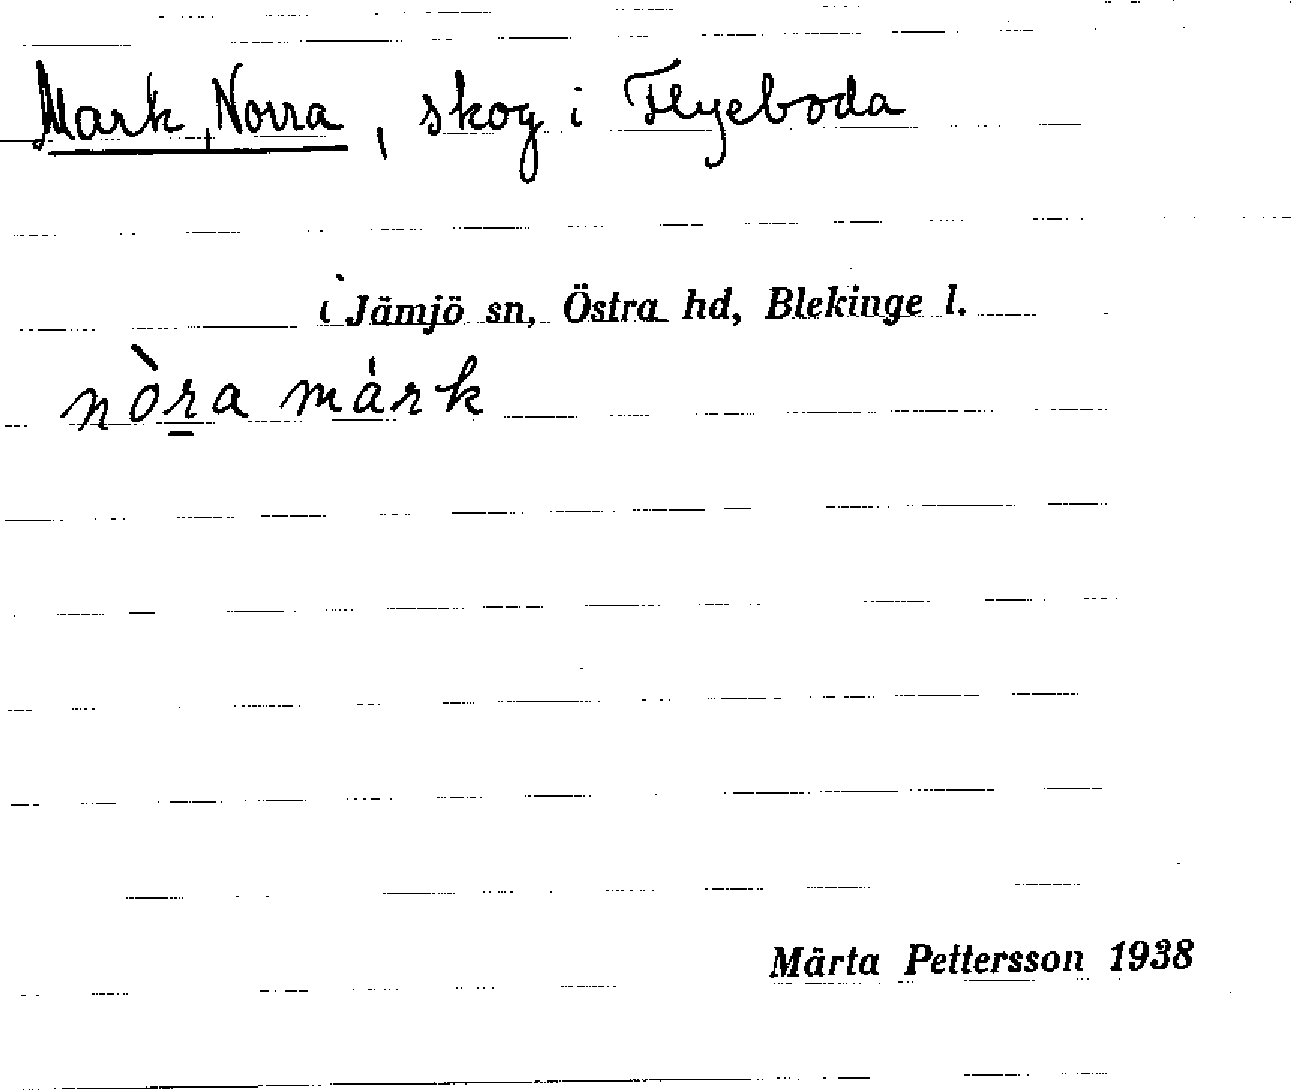 Mark, Norra, skog i Flyeboda
i Jämjö sn, Östra hd, Blekinge l.
nòṟa márk
Märta Pettersson 1938